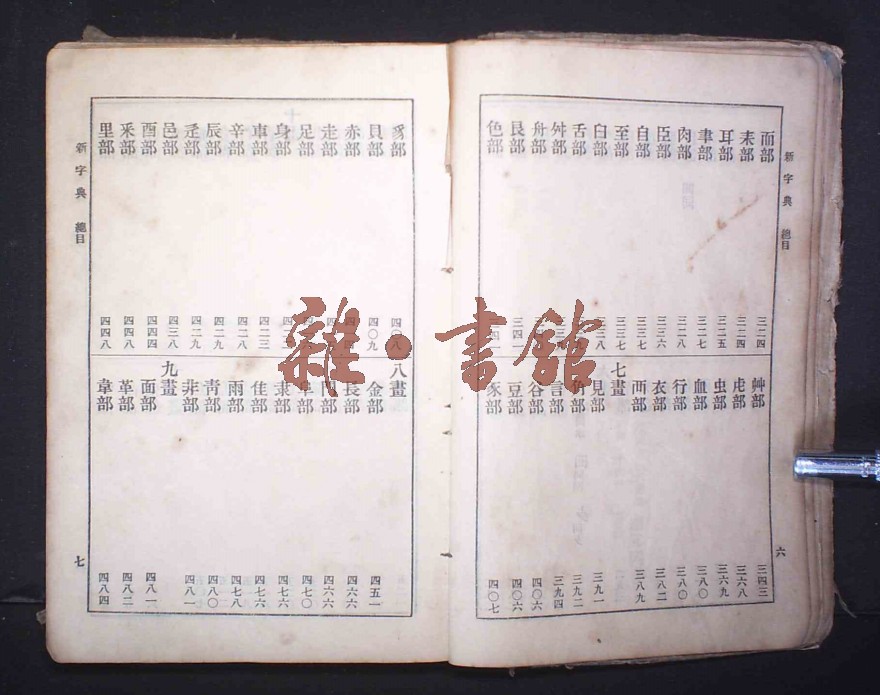 新字典 總目 六
而部 三二四
耒部 三二四
耳部 三二五
聿部 三二七
肉部 三二八
臣部 三三六
自部 三三七
至部 三三七
臼部 三三八
舌部
舛部
舟部
艮部 三四一
色部
艸部 三四三
虍部 三六八
虫部 三六九
血部 三八〇
行部 三八〇
衣部 三八二
襾部 三八九
七畫
見部 三九一
角部 三九二
言部 三九四
谷部 四〇六
豆部 四〇六
豕部 四〇七
豸部 四〇八
貝部 四〇九
赤部
走部
足部
身部
車部 四二三
辛部 四二八
辰部 四二九
辵部 四二九
邑部 四三八
酉部 四四四
釆部 四四八
里部 四四八
八畫
金部 四五一
長部 四六六
門部 四六六
阜部 四七〇
隶部 四七六
隹部 四七六
雨部 四七八
靑部 四八〇
非部 四八一
九畫
面部 四八一
革部 四八二
韋部 四八四
新字典 總目 七
雜·書館